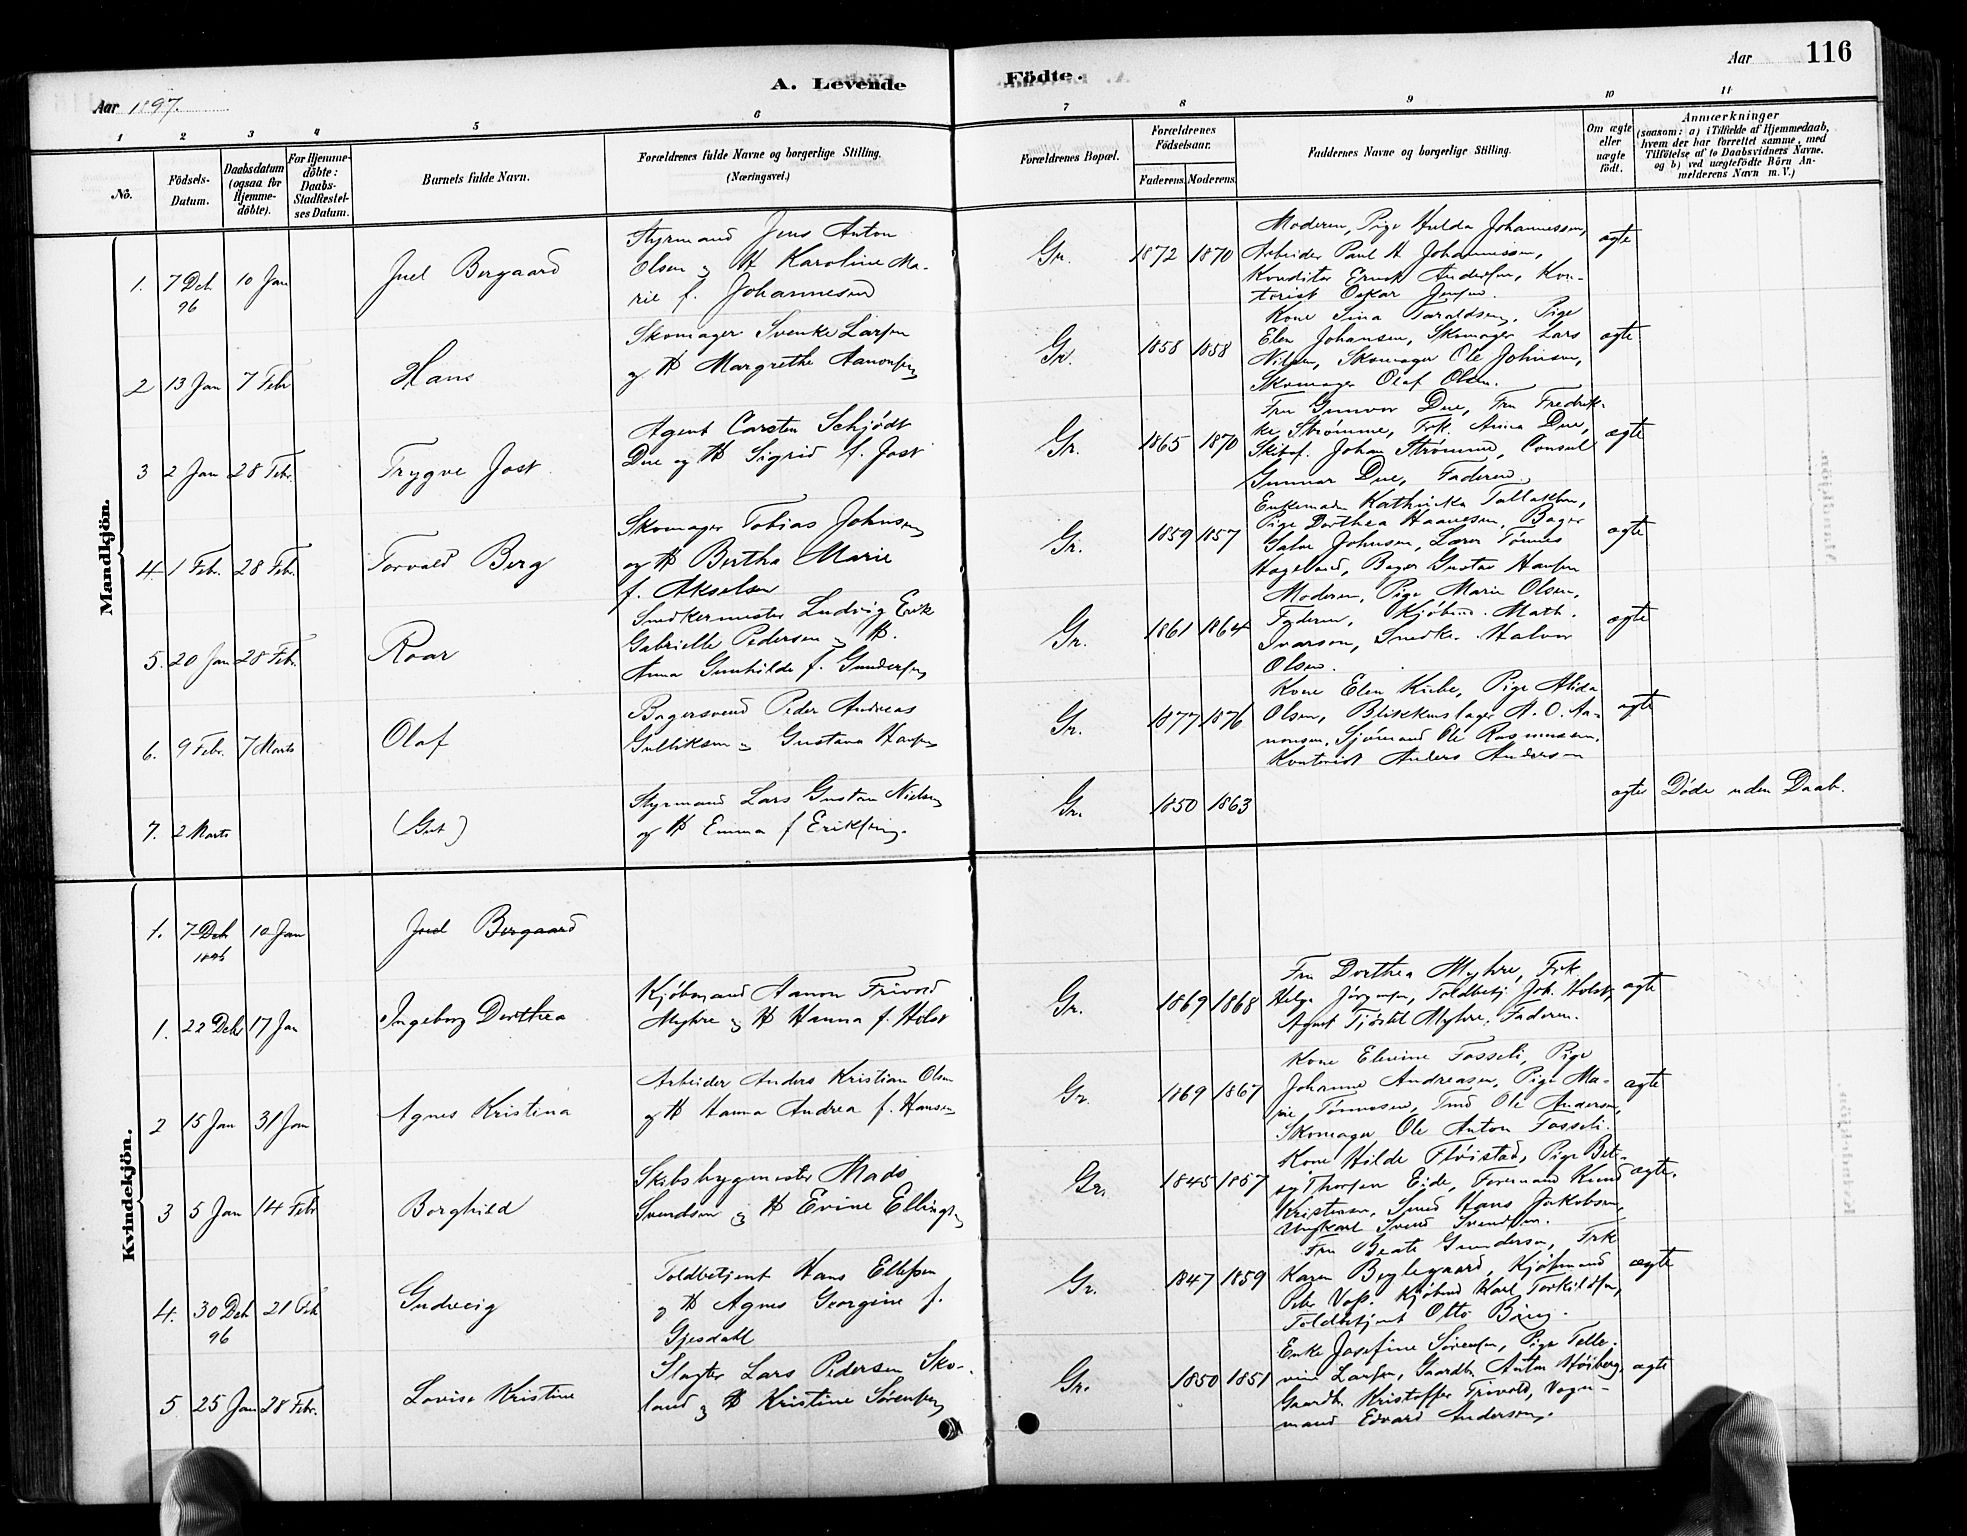 116
A. Levende
Födte.
Aar
Aar 1897.
1
2
3
4
5
6
7
8
9
10
11
No.
Födsels-
Datum.
Daabsdatum
(ogsaa for
Hjemme-
döbte).
For Hjemme-
döbte:
Daabs-
Stadfæstel-
ses Datum.
Barnets fulde Navn.
Forældrenes fulde Navne og borgerlige Stilling.
(Næringsvei.)
Forældrenes Bopæl.
Forældrenes
Födselsaar.
Faderens. Moderens.
Faddernes Navne og borgerlige Stilling.
Om ægte
eller
uægte
födt.
Anmærkninger
(saasom: a) i Tilfælde af Hjemmedaab,
hvem der har forrettet samme, med
Tilföielse af to Daabsvidners Navne.
og b) ved uægtefödte Börn An-
melderens Navn m. V.)
Mandkjön.
1. 7 Dcb. 10 Jan Juel Bergaard
96
Styrmand Jens Anton
Olsen og H Karoline Ma-
rie f. Johannesen
Gr. 1872 1870
Moderen, Pige Hulda Johannessen,
Arbeider Paul A Johannissen,
Konditor Ernst Andersen, Kon-
torist Oskar Jensen.
ægte
2 13 Jan 7 Febr Hans
Skomager Svenke Larsen
og H Margrethe Aanonsen
Gr. 1858 1858
Kone Sina Taraldsen, Pige
Elen Johansen, Skomager Lars
Nilsen, Skomager Ole Johnsen,
Skomager Olaf Olsen.
ægte
3 2 Jan 28 Febr. Trygve Jost
Agent Carsten Schjödt
Due og H Sigrid f. Jost
Gr. 1865 1870
Fru Gunvor Due, Fru Fredrik-
ke Strømme, Frk. Anna Due,
Skibsf. Johan Strømme, Consul
Gunnar Due, Faderen
ægte
4. 1 Febr. 28 Febr. Torvald Berg
Skomager Tobias Johnsen
og H Bertha Marie
f. Akselsen
Gr. 1859 1857
Enkemad. Kathinka Tallaksen,
Pige Dorthea Haavesen, Bager
Salve Johnsen, Lærer Tønnes
Hageland, Bager Gustav Hansen
ægte
5. 20 Jan 28 Febr. Roar
Snedkermester Ludvig Erik
Gabrielle Pedersen og H.
Anna Gunhilde f. Gundersen
Gr. 1861 1864
Moderen, Pige Marie Olsen,
Fyderen, Kjøbmd. Math.
Ivarson, Snedke. Halvor
Olsen.
ægte
6. 9 Febr. 7 Marts Olaf
Bagersvend Peder Andreas
Gulliksen og Gustava Hansen
Gr. 1877 1876
Kone Elen Kiebe, Pige Alida
Olsen, Blikkenslager A. O. Aa-
nonsen, Sjømand Ole Rasmussen,
Kontorist Anders Anderson
ægte
7. 2 Marts (Gut)
Styrmand Lars Gustav Nielsen
og H Emma f Eriksen.
Gr. 1850 1863
ægte Døde uden Daab.
Kvindekjön.
1. 7 Dcb 10 Jan Juel Bergaard
1896
1. 22 Dcb 17 Jan Ingeborg Dorthea
Kjøbmand Aanon Frivold
Myhre og H Hanna f. Holst
Gr. 1869 1868
Fru Dorthea Myhre, Frk.
Helga Jörgensen, Toldbetj Joh. Holst,
Agent Tjöstel Myhre, Faderen.
ægte
2 15 Jan 31 Jan Agnes Kristina
Arbeider Anders Kristian Olsen
og H Hanna Andrea f. Hansen
Gr. 1869 1867
Kone Elevine Fosseli, Pige
Johanne Andreasen, Pige Ma-
rie Tønnesen, Tmd Ole Andersen,
Skomager Ole Anton Fosseli.
ægte
3 5 Jan 14 Febr Borghild
Skibsbygmester Mads
Svendsen og H Evine Ellings
Gr. 1845 1857
Kone Hilde Fløistad, Pige Bet-
sy Thorsen Eide, Formand Knud
Kristensen, Smed Hans Jakobsen,
Ungkarl Svend Svendsen.
ægte.
4. 30 Dcb 21 Feb Gudveig
96
Toldbetjent Hans Ellefsen
og H Agnes Georgine f.
Gjesdahl
Gr. 1847 1859
Fru Beate Gundersen, Frk
Karen Bøylegaard, Kjøbmand
Peter Voss. Kjøbmd Karl Torkildsen,
Toldbetjent Otto Böing.
ægte
5 25 Jan 28 Febr. Lovise Kristine
Slagter Lars Pedersen Sko-
land og H Kristine Sörensen
Gr. 1850 1851
Enke Josefine Sörensen, Pige Telle-
vine Larsen, Gaardbr. Anton Höiberg
Gaardbr. Kristoffer Frivold, Vogn-
mand Edvard Anderson.
ægte